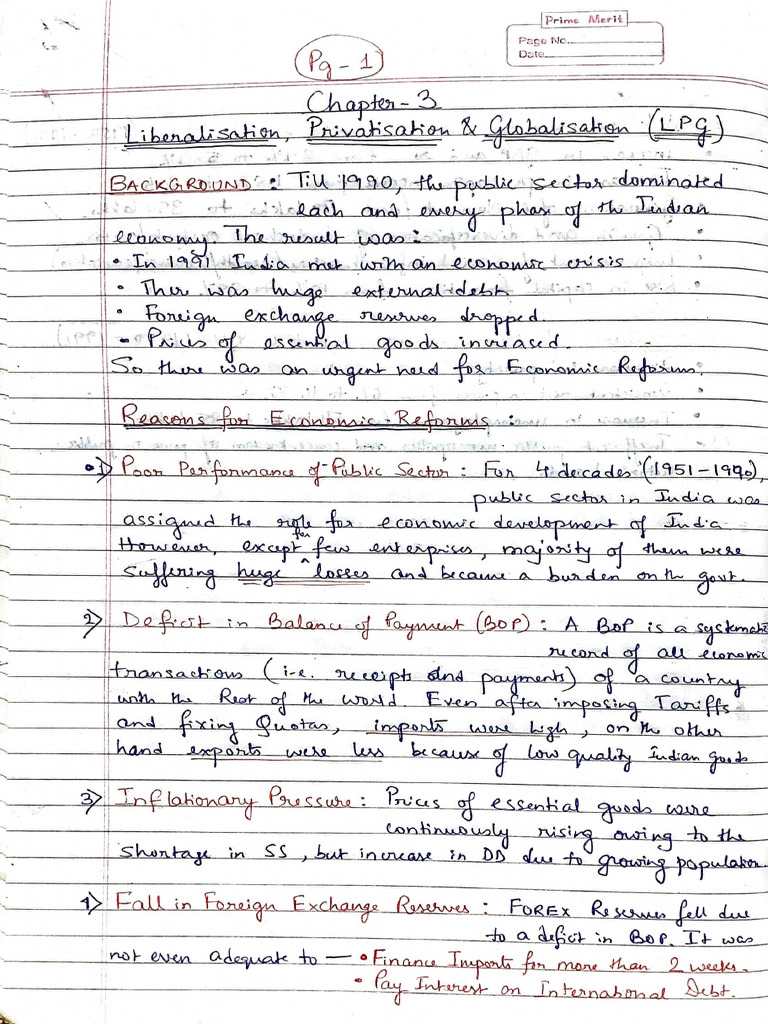 Prime Merit
Page No.
Date
Pg - 1
Chapter - 3
Liberalisation, Privatisation & Globalisation (LPG)
BACKGROUND : Till 1990, the public sector dominated
each and every phase of the Indian
economy. The result was :
• In 1991 India met with an economic crisis
• Ther was huge external debt
• Foreign exchange reserves dropped.
• Prices of essential goods increased.
So there was an urgent need for Economic Reforms.
Reasons for Economic Reforms :
1) Poor Performance of Public Sector : For 4 decades (1951-1990),
public sector in India was
assigned the role for economic development of India
However, except for few enterprises, majority of them were
suffering huge losses and became a burden on the govt.
2) Deficit in Balance of Payment (BOP) : A BOP is a systematic
record of all economic
transactions (i.e. receipts and payments) of a country
with the Rest of the world. Even after imposing Tariffs
and fixing Quotas, imports were high, on the other
hand exports were less because of low quality Indian goods
3) Inflationary Pressure : Prices of essential goods were
continuously rising owing to the
shortage in SS, but increase in DD due to growing population.
4) Fall in Foreign Exchange Reserves : FOREX Reserves fell due
to a deficit in BOP. It was
not even adequate to — • Finance Imports for more than 2 weeks.
• Pay Interest on International Debt.